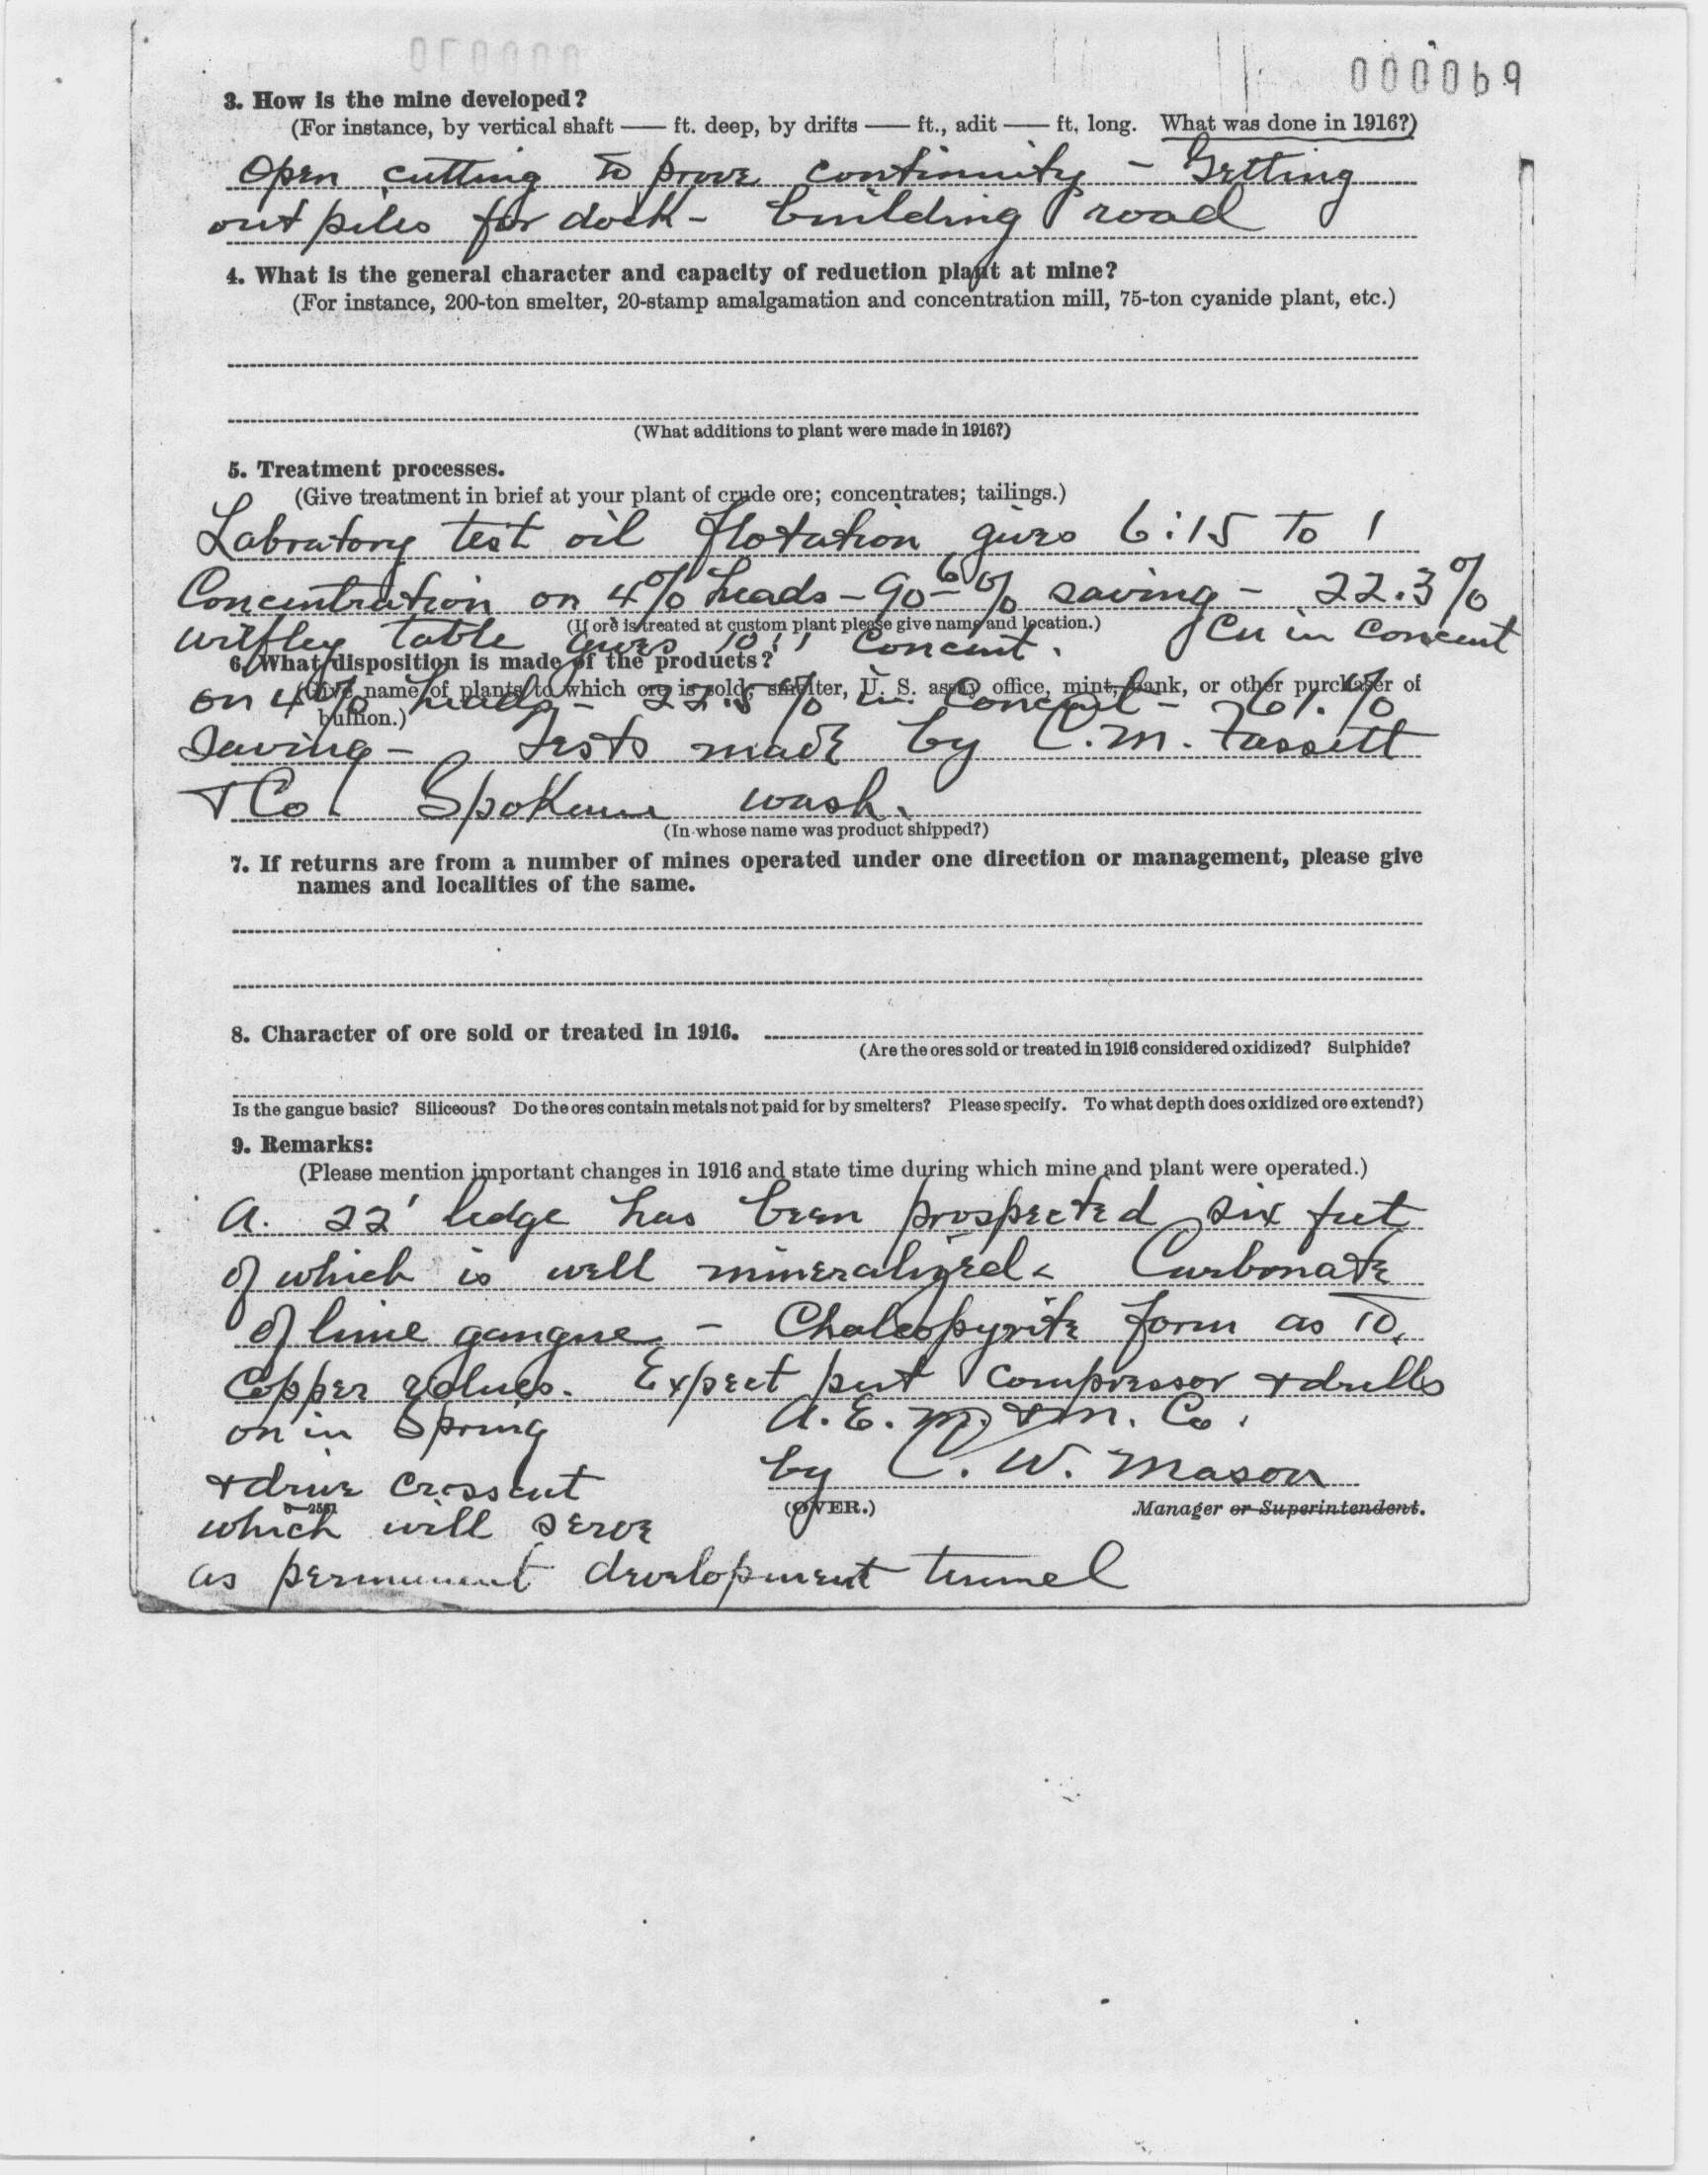 000069
3. How is the mine developed?
(For instance, by vertical shaft —— ft. deep, by drifts —— ft., adit —— ft. long. What was done in 1916?)
Open cutting to prove continuity - Getting
out piles for dock - building road
4. What is the general character and capacity of reduction plant at mine?
(For instance, 200-ton smelter, 20-stamp amalgamation and concentration mill, 75-ton cyanide plant, etc.)
(What additions to plant were made in 1916?)
5. Treatment processes.
(Give treatment in brief at your plant of crude ore; concentrates; tailings.)
Labratory test oil flotation gives 6:15 to 1
Concentration on 4% heads - 90-6% saving - 22.3%
(If ore is treated at custom plant please give name and location.)
Cu in Concent
Wilfley table gives 10:1 Concent.
6. What disposition is made of the products?
(Give name of plants to which ore is sold, smelter, U. S. assay office, mint, bank, or other purchaser of
bullion.)
on 4% heads - 22.5% in Concent - 61.%
Saving - Tests made by C. M. Fassett
+ Co Spokane Wash.
(In whose name was product shipped?)
7. If returns are from a number of mines operated under one direction or management, please give
names and localities of the same.
8. Character of ore sold or treated in 1916.
(Are the ores sold or treated in 1916 considered oxidized? Sulphide?
Is the gangue basic? Siliceous? Do the ores contain metals not paid for by smelters? Please specify. To what depth does oxidized ore extend?)
9. Remarks:
(Please mention important changes in 1916 and state time during which mine and plant were operated.)
A. 22' ledge has been prospected six feet
of which is well mineralized - Carbonate
of lime gangue - Chalcopyrite form as to
Copper values. Expect put Compressor + drills
on in Spring A. E. M. + M. Co.
by C. W. Mason
+ drive Crosscut
(OVER.) Manager or Superintendent.
9—2561
which will serve
as permanent development tunnel